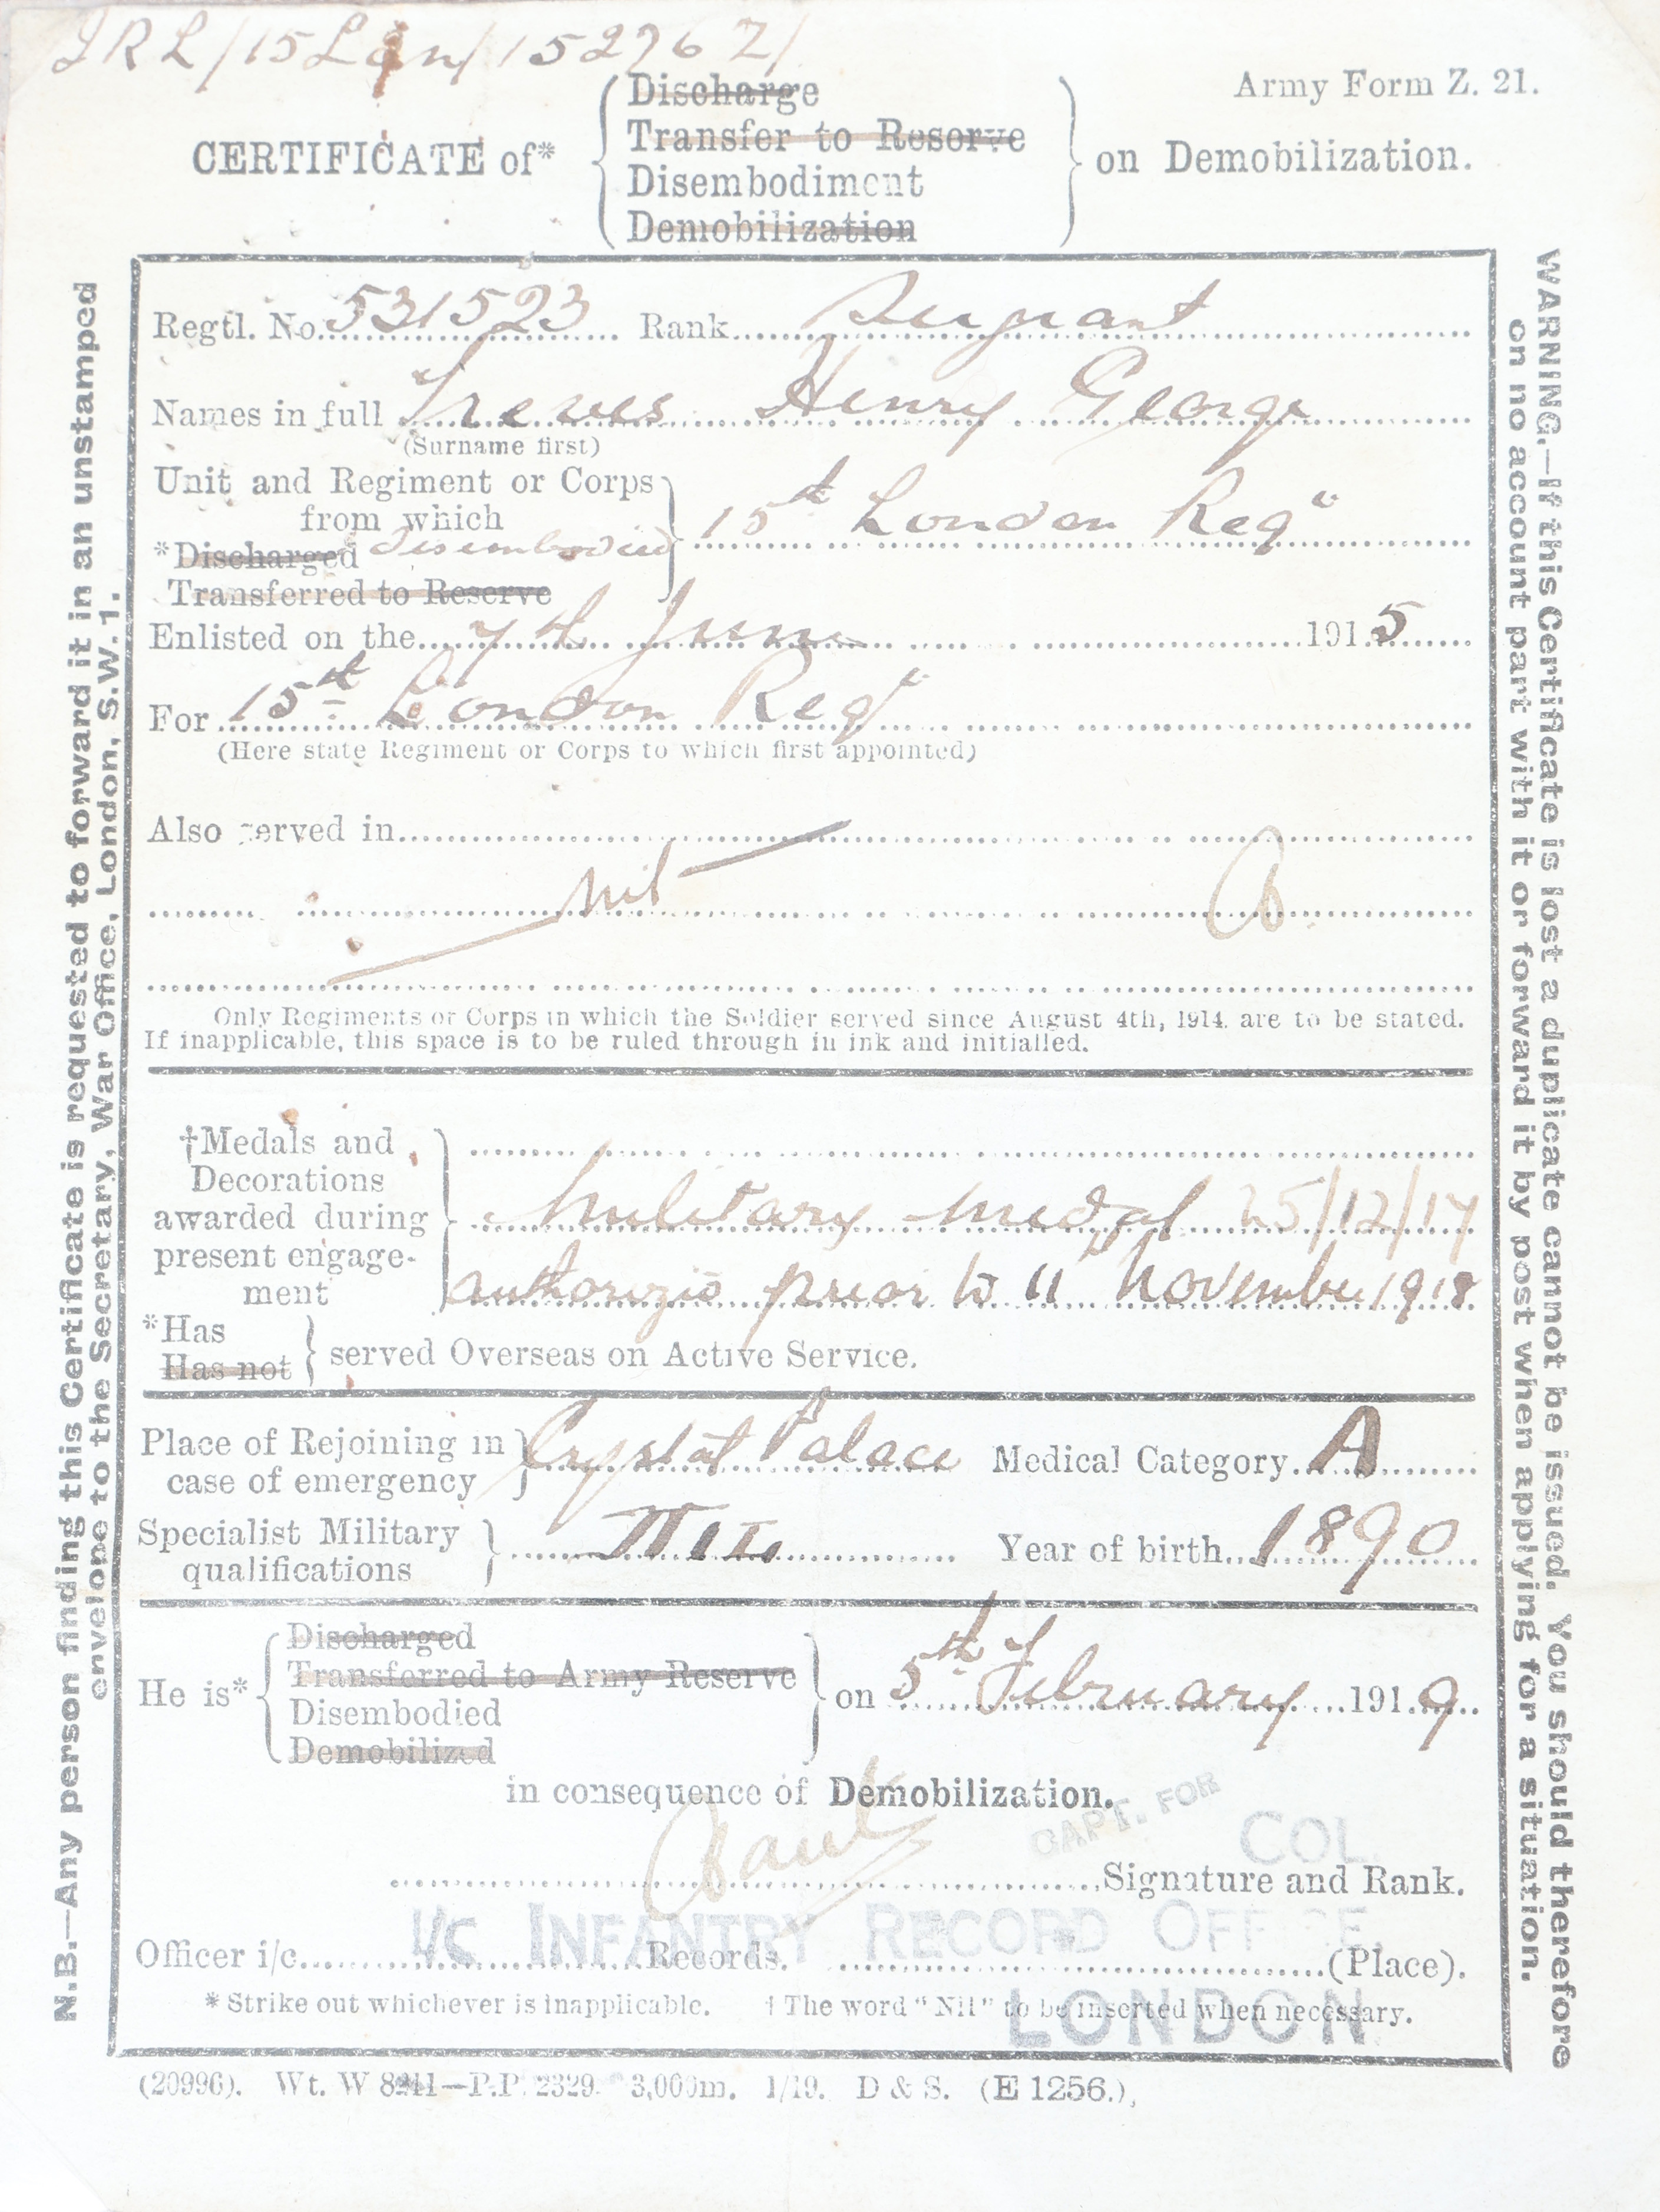 IRL/15Lon/152767/
Army Form Z. 21.
CERTIFICATE of*
Discharge
Transfer to Reserve
Disembodiment
Demobilization
on Demobilization.
Regtl. No. 531523 Rank Sergeant
Names in full Henry George
(Surname first)
Unit and Regiment or Corps
from which
*Discharged disembodied
Transferred to Reserve
15th London Regt
Enlisted on the 7th June 1915
For 15th London Regt
(Here state Regiment or Corps to which first appointed)
Also served in
nil
Only Regiments or Corps in which the Soldier served since August 4th, 1914, are to be stated.
If inapplicable, this space is to be ruled through in ink and initialled.
†Medals and
Decorations
awarded during
present engage-
ment
Military Medal 25/12/17
authorized prior to 11 November 1918
*Has
Has not
served Overseas on Active Service.
Place of Rejoining in
case of emergency
Crystal Palace Medical Category A
Specialist Military
qualifications
NIL Year of birth 1890
He is*
Discharged
Transferred to Army Reserve
Disembodied
Demobilized
on 5th February 1919
in consequence of Demobilization.
CAPT. FOR
COL.
Signature and Rank.
I/C INFANTRY RECORD OFFICE,
Officer i/c Records. (Place).
LONDON
* Strike out whichever is inapplicable. † The word "Nil" to be inserted when necessary.
(20996). Wt. W 8241—P.P. 2329. 3,000m. 1/19. D & S. (E 1256.),
N.B.—Any person finding this Certificate is requested to forward it in an unstamped
envelope to the Secretary, War Office, London, S.W. 1.
WARNING.—If this Certificate is lost a duplicate cannot be issued. You should therefore
on no account part with it or forward it by post when applying for a situation.